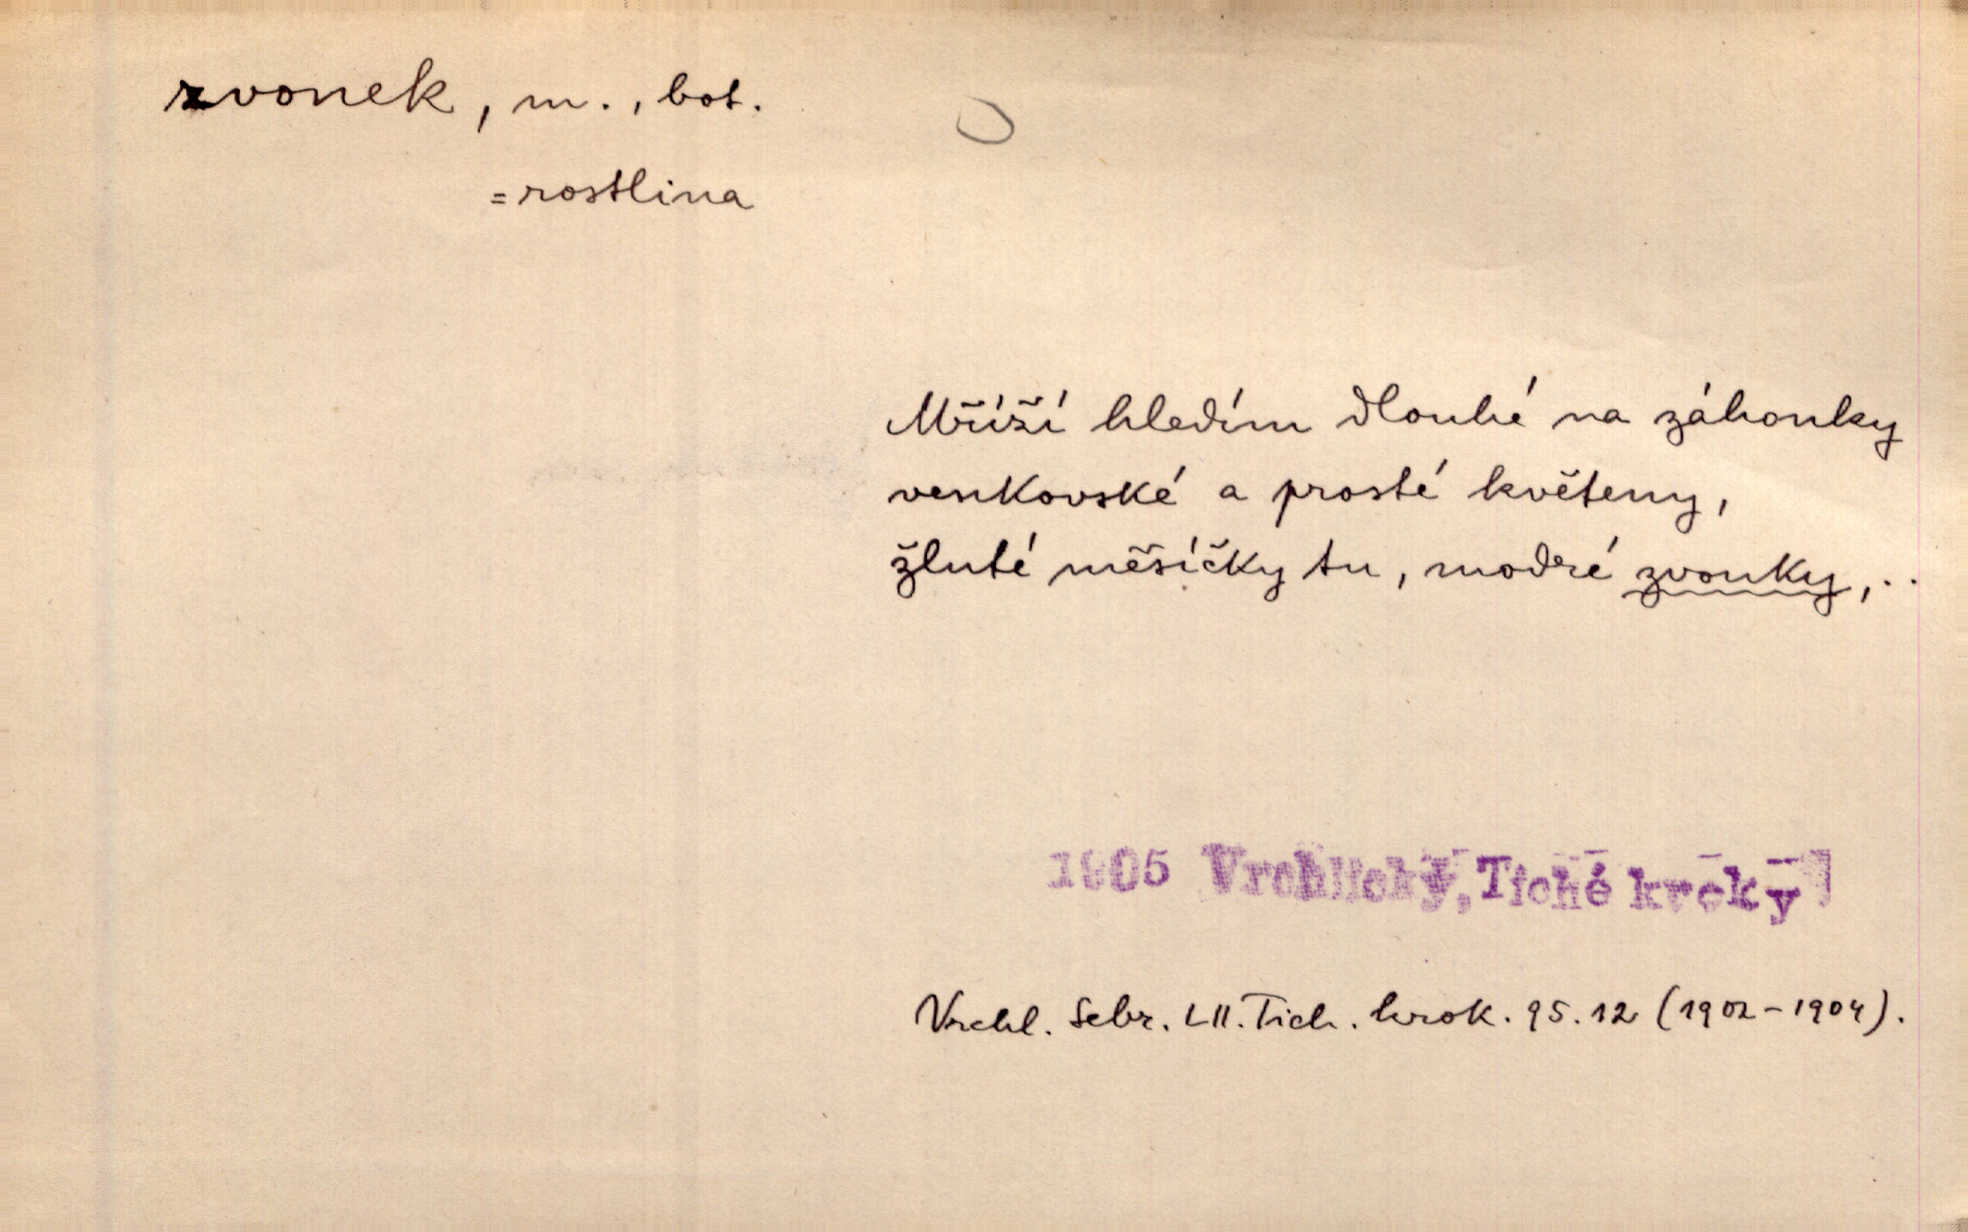 zvonek, m., bot.
=rostlina
Mříží hledím dlouhé na záhonky
venkovské a prosté květeny,
žluté měsíčky tu, modré zvonky,..
1905 Vrchlický, Tiché kroky
Vrchl. Sebr. LII. Tich. krok. 95.12 (1902-1904).